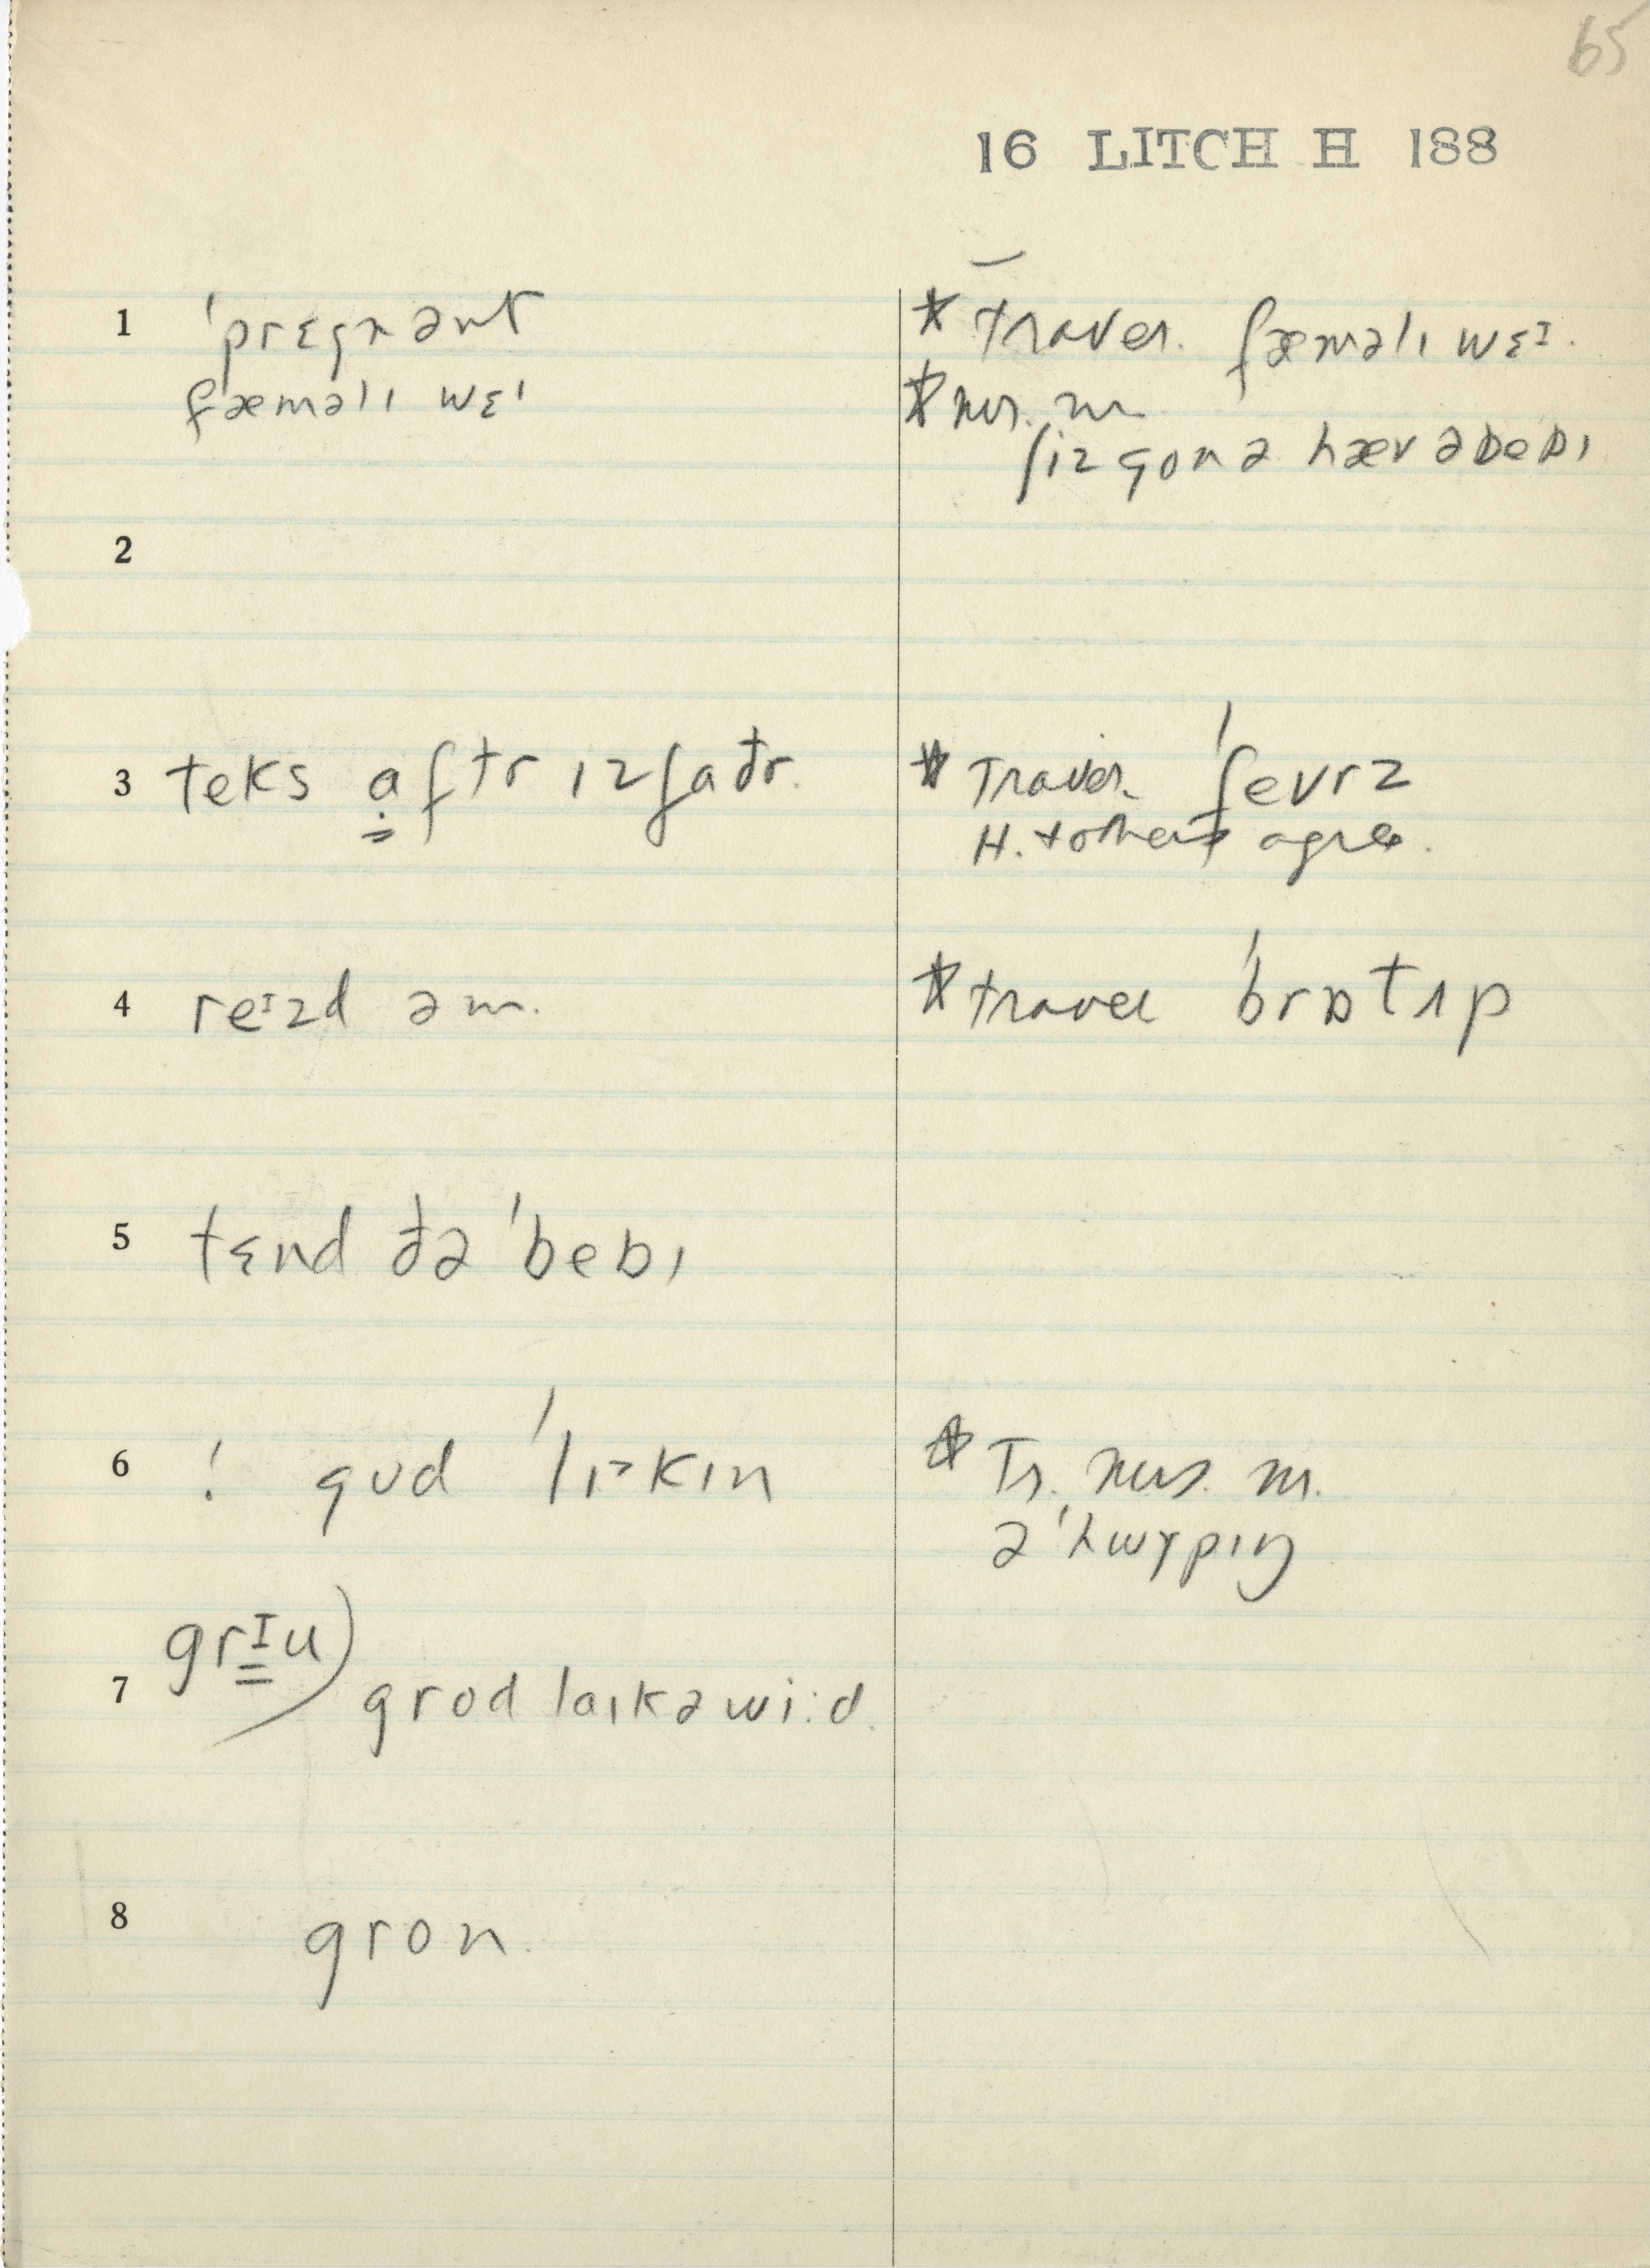 65
16 LITCH H 188
1 ˈprɛgnənt
fæməlɪ wɛɪ
* Traver. fæməlɪ wɛɪ.
*
ʃiz gonə hæv əbebɪ
2
3 teks a̤ftr ɪz faðr.
* Traver. ˈfevrz
H. + others agree.
4 reɪzd əm.
* traver ˈbrɒtʌp
5 tɛnd ðə ˈbebɪ
6 ! gʊd ˈlɪkɪn
* Tr. m.
ə ˈhwɤpɪŋ
7 grɪu) grod laɪk ə wi:d.
8 gron.